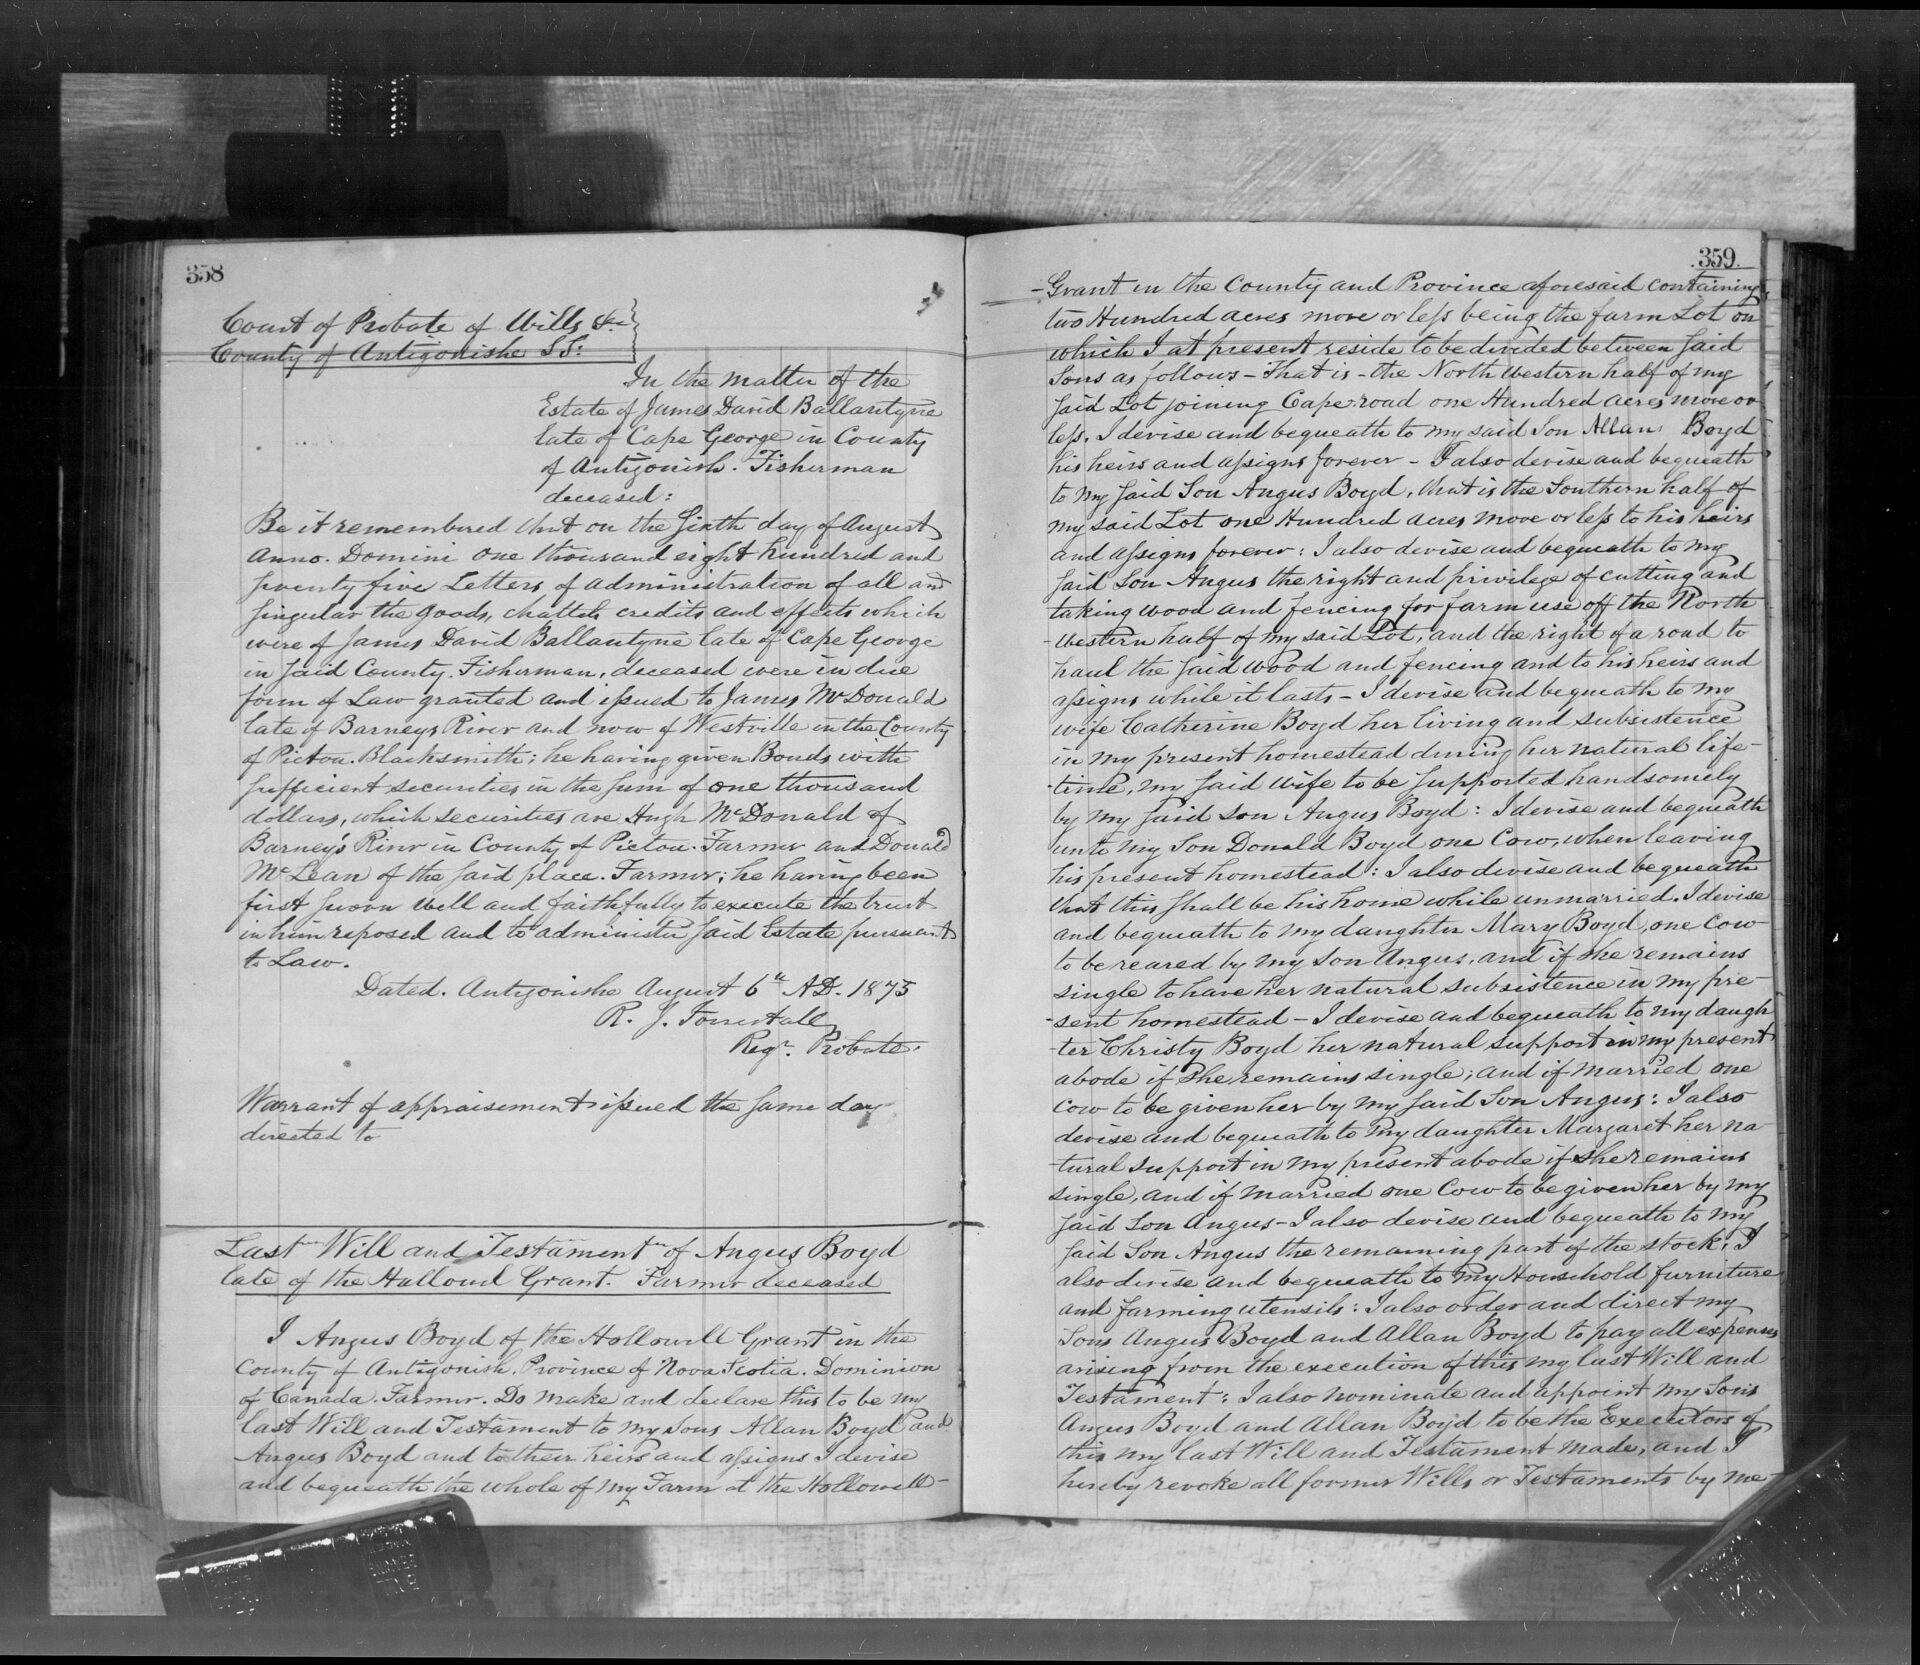 358
Court of Probate of Wills &c
County of Antigonishe SS:
In the matter of the
Estate of James David Ballantyne
late of Cape George in County
of Antigonish. Fisherman
deceased:
Be it remembered that on the Sixth day of August
Anno. Domini one thousand eight hundred and
seventy five Letters of administration of all and
singular the goods, chattels credits and effects which
were of James David Ballantyne late of Cape George
in said County. Fisherman, deceased were in due
form of Law granted and issued to James McDonald
late of Barneys River and now of Westville in the County
of Pictou. Blacksmith; he having given Bonds with
sufficient securities in the sum of one thousand
dollars, which securities are Hugh McDonald of
Barney's River in County of Pictou. Farmer and Donald
McLean of the said place. Farmer; he having been
first sworn well and faithfully to execute the trust
in him reposed and to administer said Estate pursuant
to Law.
Dated. Antigonishe August 6th AD. 1875
R. J. Forrestall
Regr. Probate.
Warrant of appraisement issued the same day
directed to
Last Will and Testament of Angus Boyd
late of the Hallowel Grant. Farmer deceased
I Angus Boyd of the Hollowell Grant in the
County of Antigonish. Province of Nova Scotia. Dominion
of Canada. Farmer. Do make and declare this to be my
last Will and Testament to my sons Allan Boyd and
Angus Boyd and to their heirs and assigns I devise
and bequeath the whole of my Farm at the Hollowell-
359
-Grant in the County and Province aforesaid containing
two Hundred acres more or less being the farm Lot on
which I at present reside to be divided between said
sons as follows - That is - the North western half of my
said Lot joining Cape road one Hundred acres more or
less. I devise and bequeath to my said Son Allan Boyd
his heirs and assigns forever - I also devise and bequeath
to my said Son Angus Boyd, that is the Southern half of
my said Lot one Hundred acres more or less to his heirs
and assigns forever: I also devise and bequeath to my
said Son Angus the right and privilege of cutting and
taking wood and fencing for farm use off the North
-western half of my said Lot, and the right of a road to
haul the said wood and fencing and to his heirs and
assigns while it lasts - I devise and bequeath to my
wife Catherine Boyd her living and subsistence
in my present homestead during her natural life-
-time, my said wife to be supported handsomely
by my said son Angus Boyd: I devise and bequeath
unto my Son Donald Boyd one Cow, when leaving
his present homestead: I also devise and bequeath
that this shall be his home while unmarried. I devise
and bequeath to my daughter Mary Boyd, one Cow
to be reared by my son Angus, and if she remains
single to have her natural subsistence in my pre-
-sent homestead - I devise and bequeath to my daugh
-ter Christy Boyd her natural support in my present
abode if she remains single; and if married one
cow to be given her by my said Son Angus: I also
devise and bequeath to my daughter Margaret her na
-tural support in my present abode if she remains
single, and if married one Cow to be given her by my
said Son Angus - I also devise and bequeath to my
said Son Angus the remaining part of the stock; I
also devise and bequeath to my Household furniture
and farming utensils: I also order and direct my
Sons Angus Boyd and Allan Boyd to pay all expenses
arising from the execution of this my last Will and
Testament: I also nominate and appoint my Sons
Angus Boyd and Allan Boyd to be the Executors of
this my last Will and Testament made, and I
hereby revoke all former Wills or Testaments by me-